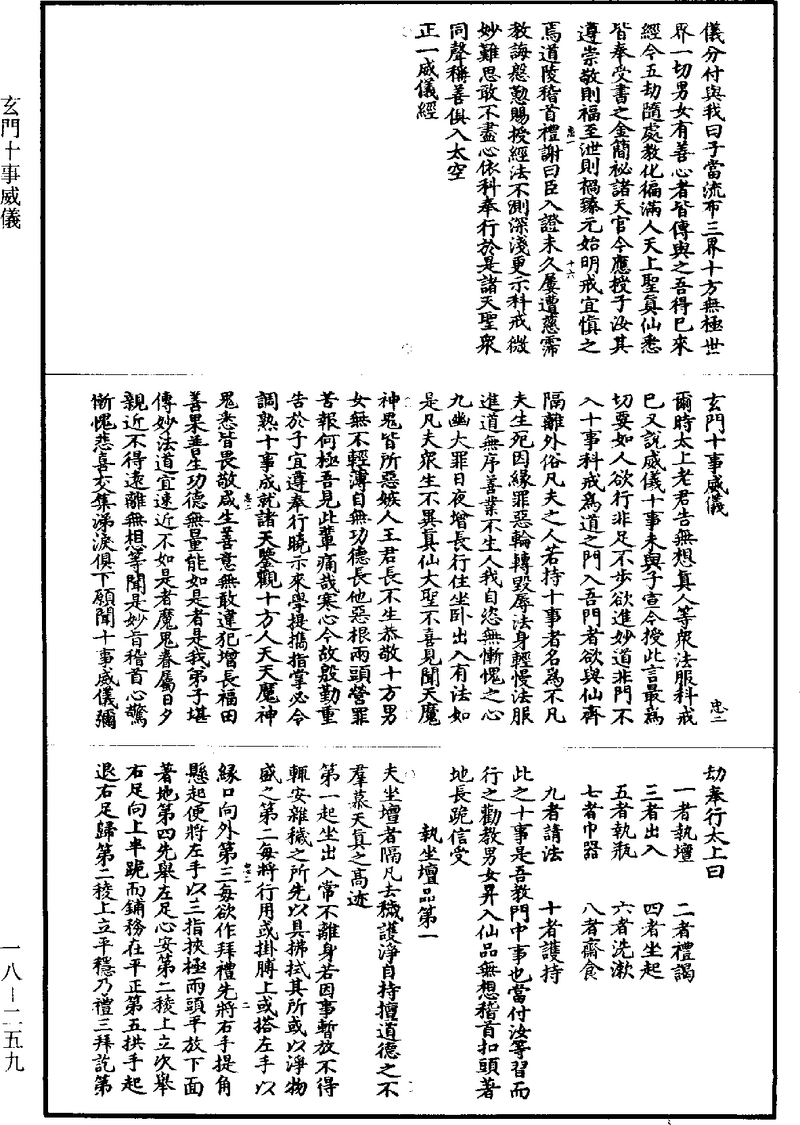 儀分付與我曰子當流布三界十方無極世
界一切男女有善心者皆傳與之吾得已來
經今五劫隨處教化徧滿人天上聖真仙悉
皆奉受書之金簡祕諸天官今應授子汝其
遵崇敬則福至泄則禍臻元始明戒宜慎之
焉道陵稽首禮謝曰臣入證未久屢遭慈霈
教誨慇懃賜授經法不測深淺更示科戒微
妙難思敢不盡心依科奉行於是諸天聖衆
同聲稱善俱入太空
正一威儀經
玄門十事威儀
忠二
爾時太上老君告無想真人等衆法服科戒
已又說威儀十事夫與子宣令授此言最爲
切要如人欲行非足不步欲進妙道非門不
入十事科戒爲道之門入吾門者欲與仙齊
隔離外俗凡夫之人若持十事者名爲不凡
夫生死因緣罪惡輪轉毀辱法身輕慢法服
進道無序善業不生人我自恣無慚愧之心
九幽大罪日夜增長行住坐卧出入有法如
是凡夫衆生不異真仙大聖不喜見聞天魔
神鬼皆所惡嫉人王君長不生恭敬十方男
女無不輕薄自無功德長他惡根兩頭營罪
苦報何極吾見此輩痛哉寒心今故殷勤重
告於子宜遵奉行曉示來學提攜指掌必令
調熟十事成就諸天鑒觀十方人天天魔神
鬼悉皆畏敬咸生善意無敢違犯增長福田
善果善星功德無量能如是者是我弟子堪
傳妙法道宜速近不如是者魔鬼眷屬日夕
親近不得遠離無想等聞是妙旨稽首心驚
慚愧悲喜交集涕淚俱下願聞十事威儀彌
劫奉行太上曰
一者執壇 二者禮謁
三者出入 四者坐起
五者執瓶 六者洗漱
七者巾器 八者齋食
九者請法 十者護持
此之十事是吾教門中事也當付汝等習而
行之勸教男女昇入仙品無想稽首扣頭著
地長跪信受
執坐壇品第一
夫坐壇者隔凡去穢護淨自持擅道德之不
羣慕天真之髙迹
第一起坐出入常不離身若因事暫放不得
輒安雜穢之所先以具拂拭其所或以淨物
盛之第二每將行用或掛膊上或搭左手以
緣口向外第三每欲作拜禮先將右手提角
懸起便將左手以三指挾極兩頭平放下面
著地第四先舉左足心安第二稜上立次舉
右足向上半跪而鋪務在平正第五拱手起
退右足歸第二稜上立平穩乃禮三拜訖第
玄門十事威儀
一八—二五九